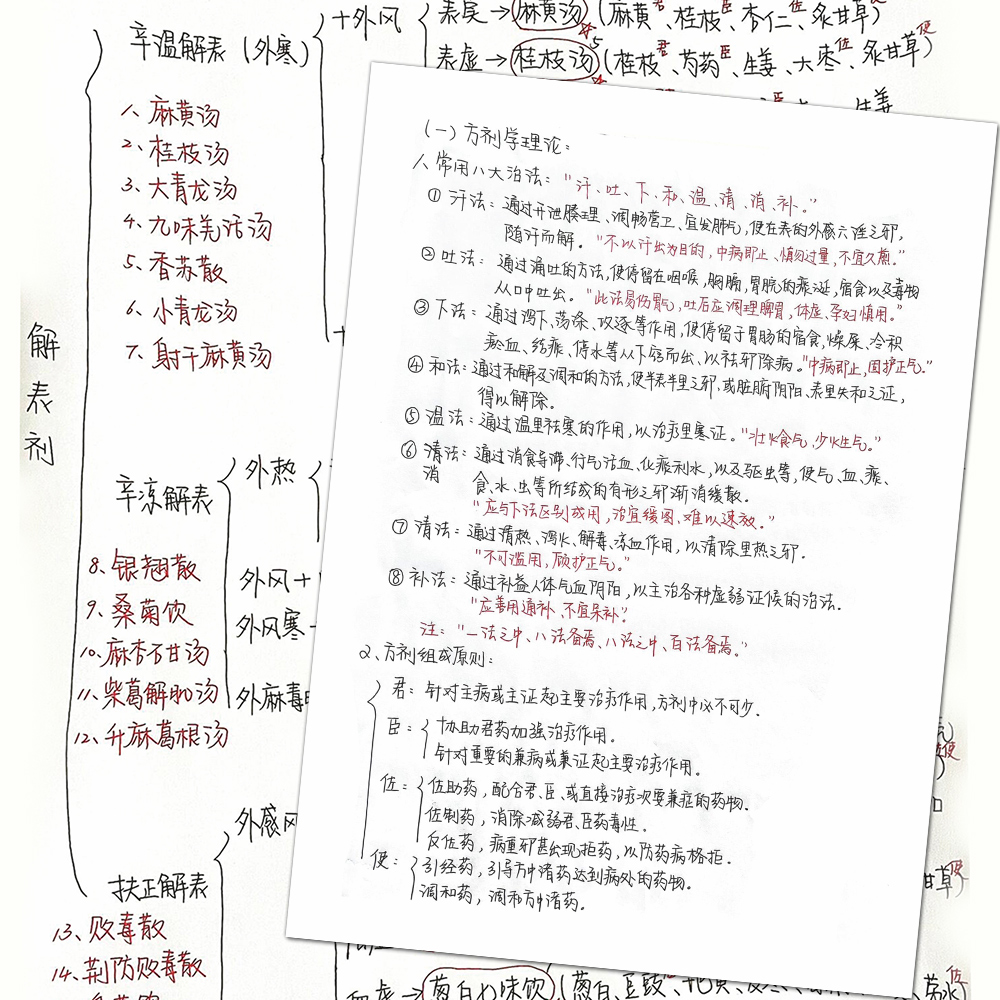 辛温解表(外寒)
+外风
表实→麻黄汤(麻黄君、桂枝臣、杏仁佐、炙甘草使)
表虚→桂枝汤(桂枝君、芍药臣、生姜、大枣佐、炙甘草使)
生姜
1、麻黄汤
2、桂枝汤
3、大青龙汤
4、九味羌活汤
5、香苏散
6、小青龙汤
7、射干麻黄汤
解表剂
辛凉解表
外热
外风+
外风寒
外麻毒
8、银翘散
9、桑菊饮
10、麻杏石甘汤
11、柴葛解肌汤
12、升麻葛根汤
外感风
扶正解表
13、败毒散
14、荆防败毒散
甘草)使
葱白七味饮(葱白、豆豉
(一)方剂学理论:
1、常用八大治法:"汗、吐、下、和、温、清、消、补。"
① 汗法:通过开泄腠理、调畅营卫、宣发肺气,使在表的外感六淫之邪,
随汗而解。"不以汗出为目的,中病即止、慎勿过量,不宜久煎。"
② 吐法:通过涌吐的方法,使停留在咽喉,胸膈,胃脘的痰涎,宿食以及毒物
从口中吐出。"此法易伤胃气,吐后应调理脾胃,体虚、孕妇慎用。"
③ 下法:通过泻下、荡涤、攻逐等作用,使停留于胃肠的宿食,燥屎、冷积
瘀血、结痰、停水等从下窍而出、以祛邪除病。"中病即止,固护正气。"
④ 和法:通过和解及调和的方法,使半表半里之邪、或脏腑阴阳、表里失和之证,
得以解除。
⑤ 温法:通过温里祛寒的作用,以治疗里寒证。"壮火食气,少火生气。"
⑥ 清法:通过消食导滞、行气活血、化痰利水,以及驱虫等,使气、血、痰、
消
食、水、虫等所结成的有形之邪渐消缓散。
"应与下法区别或用,治宜缓图、难以速效。"
⑦ 清法:通过清热、泻火、解毒、凉血作用,以清除里热之邪.
"不可滥用,顾护正气。"
⑧ 补法:通过补益人体气血阴阳,以主治各种虚弱证候的治法.
"应善用通补、不宜呆补"
注:"一法之中、八法备焉、八法之中、百法备焉。"
2、方剂组成原则:
君:针对主病或主证起主要治疗作用,方剂中必不可少.
臣:
协助君药加强治疗作用.
针对重要的兼病或兼证起主要治疗作用.
佐:佐助药,配合君、臣、或直接治疗次要兼症的药物.
佐制药,消除减弱君、臣药毒性.
反佐药,病重邪甚出现拒药,以防药病格拒.
使:引经药,引导方中诸药达到病处的药物.
调和药,调和方中诸药.